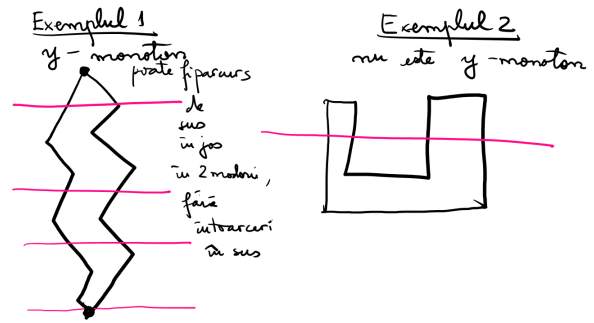 Exemplul 1
y - monoton
poate fi parcurs
de
sus
în jos
în 2 moduri,
fără
întoarceri
în sus
Exemplul 2
nu este y - monoton